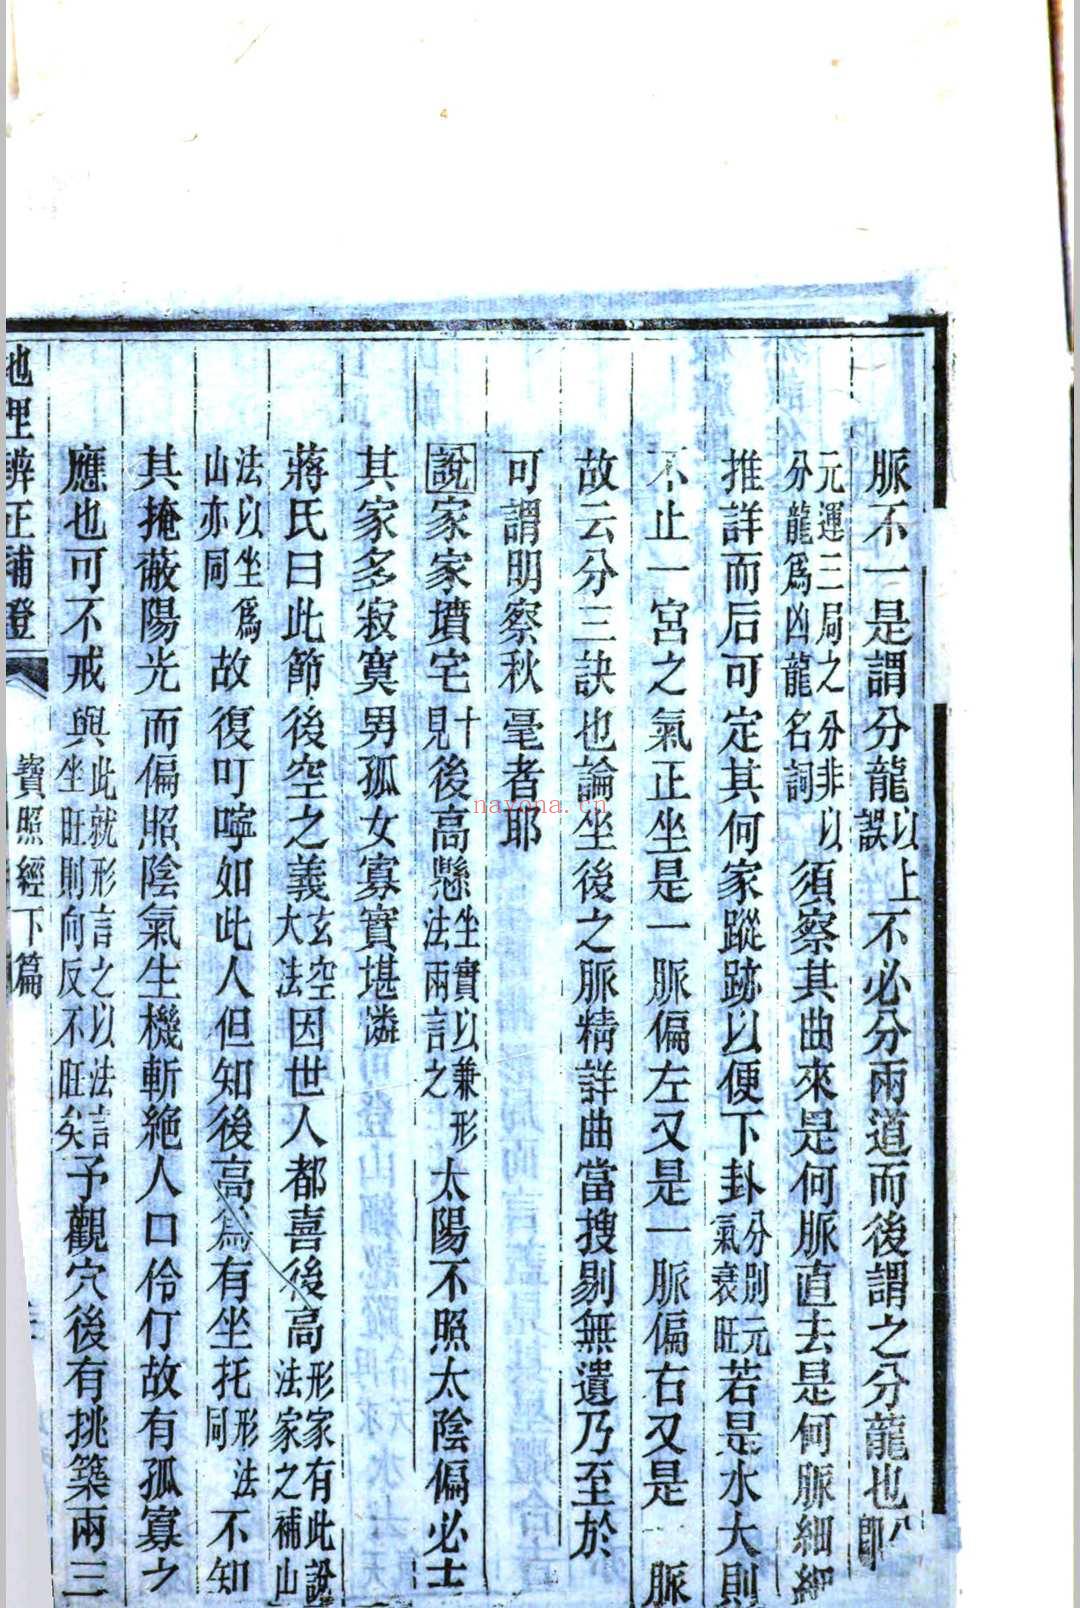 脈不一是謂分龍以上誤不必分兩道而後謂之分龍也八卽
元運三局之分非以分龍爲凶龍名詞須察其曲來是何脈直去是何脈細細
推詳而后可定其何家蹤跡以便下卦分別元氣衰旺若是水大則
不止一宮之氣正坐是一脈偏左又是一脈偏右又是 脈
故云分三訣也論坐後之脈精詳曲當搜剔無遺乃至於
可謂明察秋毫者耶
說家家墳宅十見後高懸坐實以兼形法兩言之太陽不照太陰偏必主
其家多寂寞男孤女寡實堪憐
蔣氏曰此節後空之義玄空大法因世人都喜後高形家有此說法家之補山
法以坐爲山亦同故復叮嚀如此人但知後高爲有坐托形法同不知
其掩蔽陽光而偏照陰氣生機斬絶人口伶仃故有孤寡之
應也可不戒與此就形言之以法言坐旺則向反不旺矣予觀穴後有挑築兩三
地理辨正補證
寶照經下篇
nayona.cn